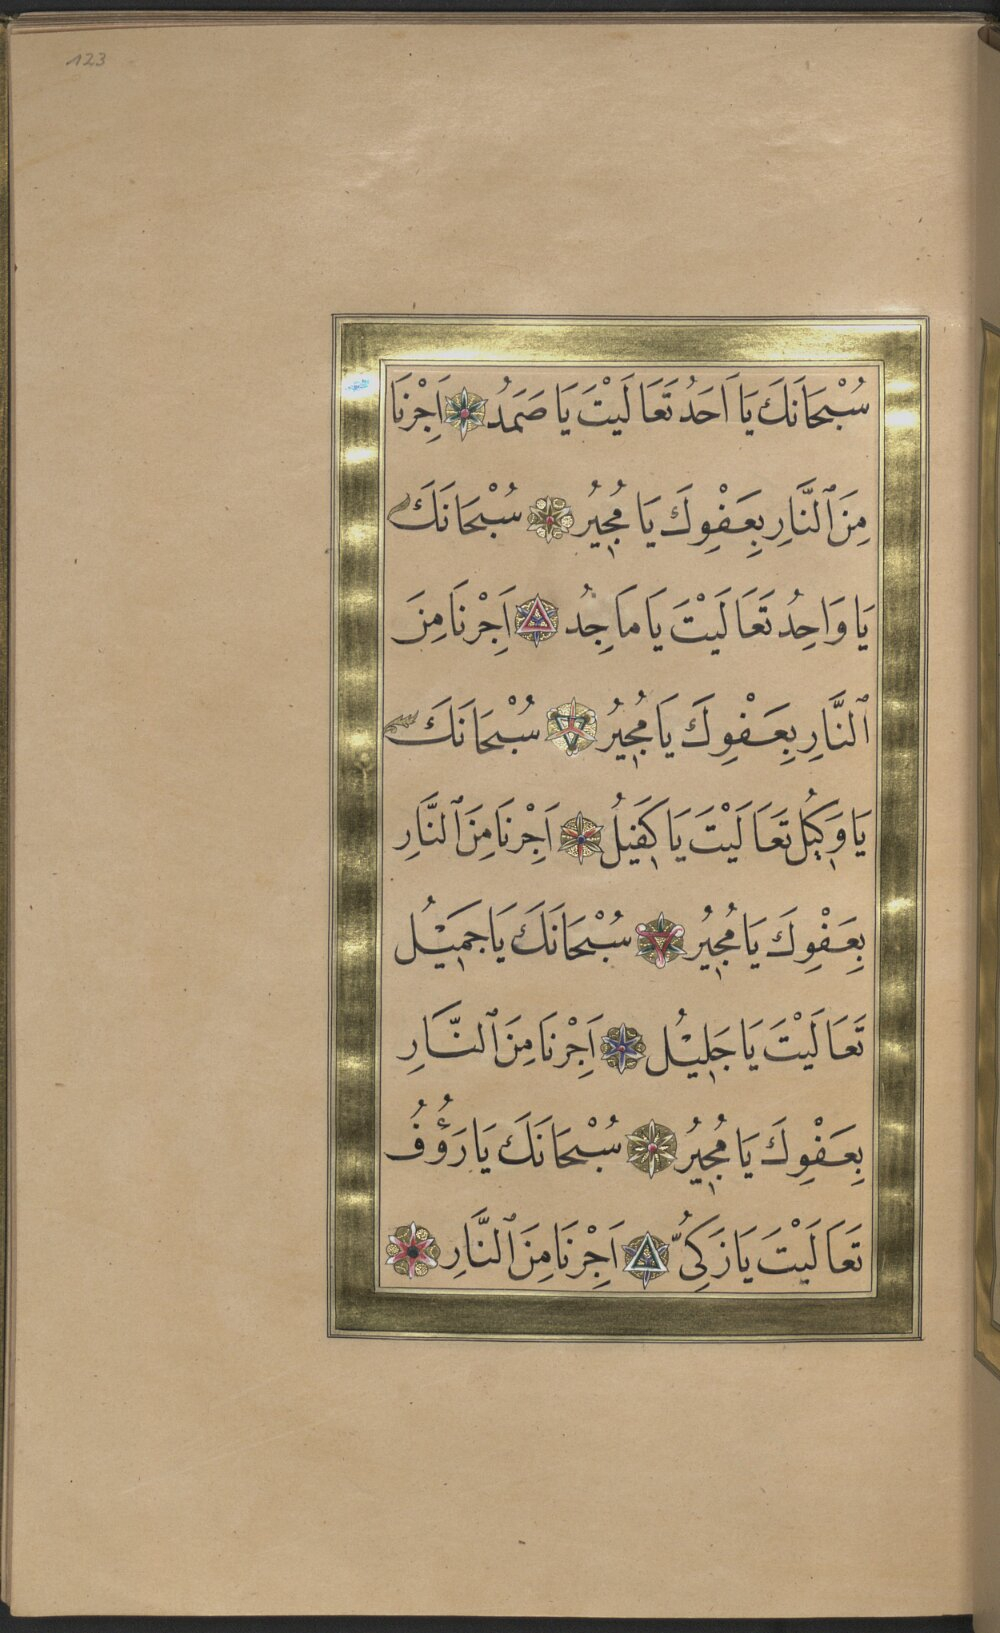 123
سُبْحَانَكَ يَا اَحَدُ تَعَالَيْتَ يَا صَمَدُ اَجِرْنَا
مِنَ ٱلنَّارِ بِعَفْوِكَ يَا مُجِيرُ سُبْحَانَكَ
يَا وَاحِدُ تَعَالَيْتَ يَا مَاجِدُ اَجِرْنَا مِنَ
ٱلنَّارِ بِعَفْوِكَ يَا مُجِيرُ سُبْحَانَكَ
يَا وَكِيلُ تَعَالَيْتَ يَا كَفِيلُ اَجِرْنَا مِنَ ٱلنَّارِ
بِعَفْوِكَ يَا مُجِيرُ سُبْحَانَكَ يَا جَمِيْلُ
تَعَالَيْتَ يَا جَلِيْلُ اَجِرْنَا مِنَ ٱلنَّارِ
بِعَفْوِكَ يَا مُجِيرُ سُبْحَانَكَ يَا رَؤُفُ
تَعَالَيْتَ يَا زَكِىُّ اَجِرْنَا مِنَ ٱلنَّارِ